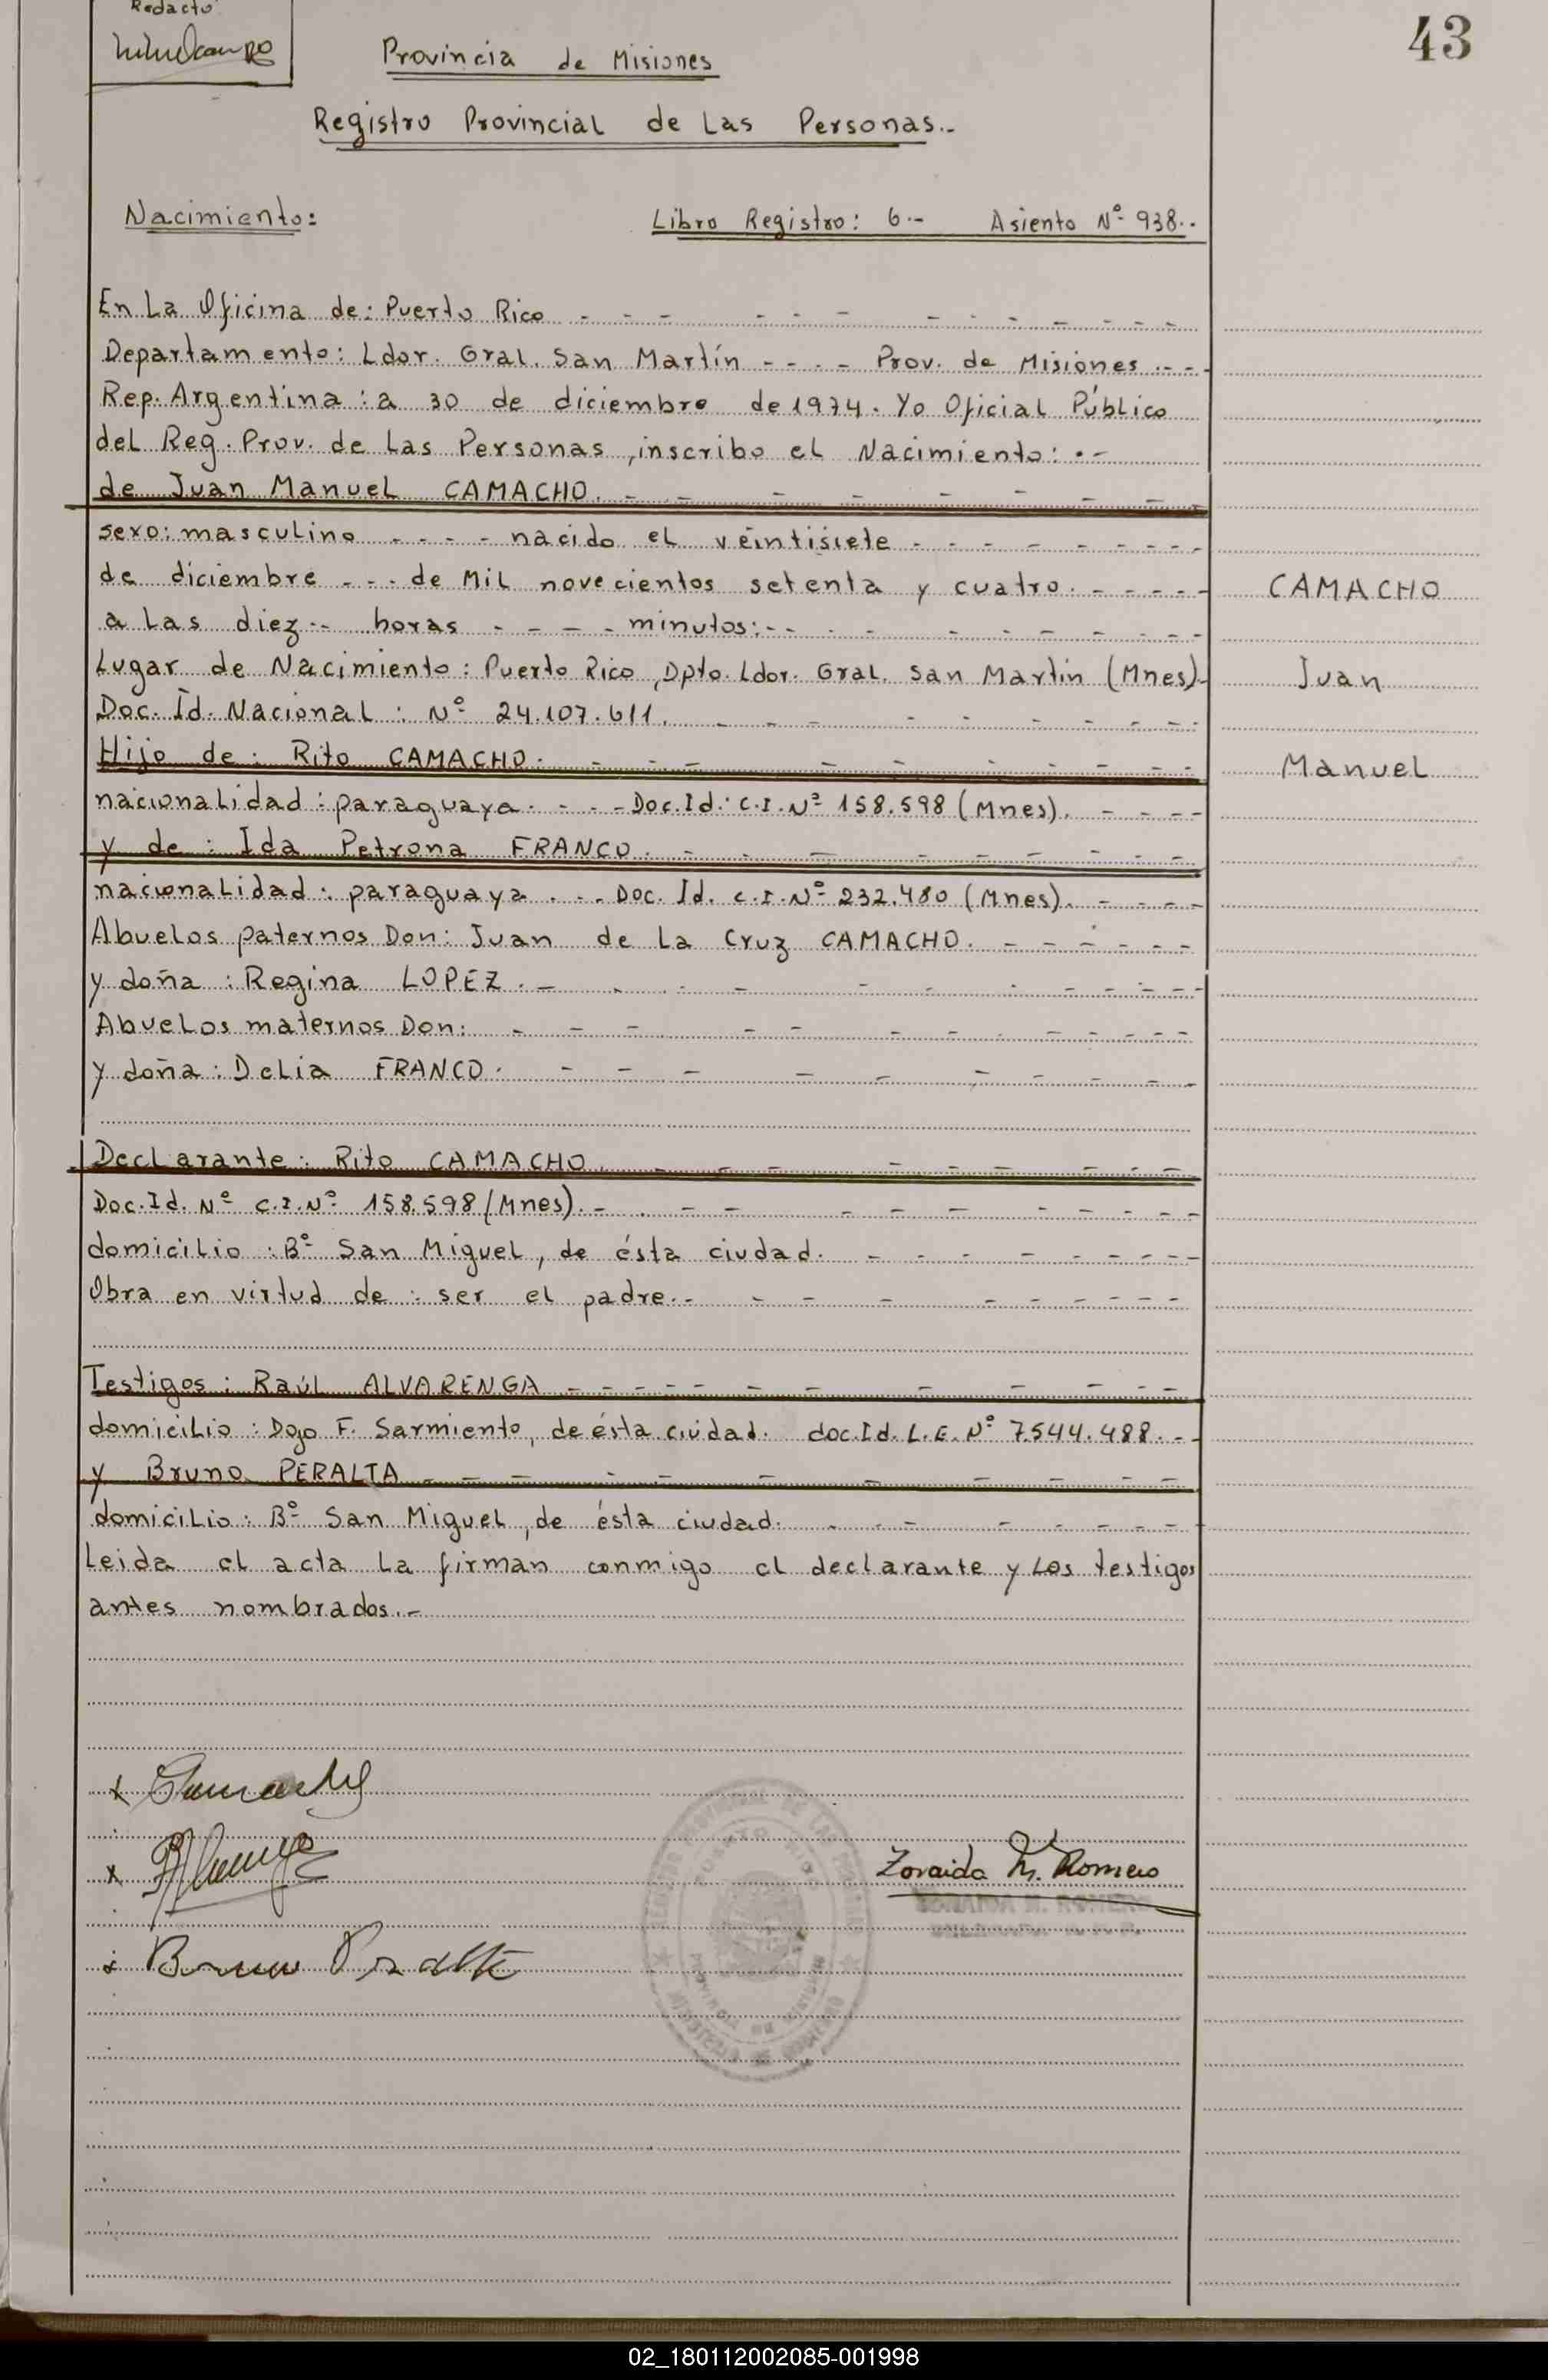 Redactó
43
Provincia de Misiones
Registro Provincial de Las Personas.-
Nacimiento: Libro Registro: 6.- Asiento Nº 938.-
En La Oficina de: Puerto Rico - - - - - - - - - - - -
Departamento: Ldor. Gral. San Martín - - - - Prov. de Misiones.- - -
Rep. Argentina: a 30 de diciembre de 1974. Yo Oficial Público
del Reg. Prov. de Las Personas, inscribo el Nacimiento: . -
de Juan Manuel CAMACHO. - - - - - - - -
sexo: masculino - - - - nacido el véintisiete - - - - - - - - -
de diciembre - - - de Mil novecientos setenta y cuatro. - - - - - CAMACHO
a Las diez -- horas - - - - minutos: - - - - - - - - - -
Lugar de Nacimiento: Puerto Rico, Dpto. Ldor. Gral. San Martín (Mnes).- Juan
Doc. Id. Nacional: Nº 24.107.611. - - - - - - - - - -
Hijo de: Rito CAMACHO. - - - - - - - - - - Manuel
nacionalidad: paraguaya. - - - Doc. Id.: C.I. Nº 158.598 (Mnes). - - - -
y de: Ida Petrona FRANCO. - - - - - - - - -
nacionalidad: paraguaya . - - Doc. Id. C.I. Nº 232.480 (Mnes). - - - -
Abuelos paternos Don: Juan de La Cruz CAMACHO. - - - - - -
y doña: Regina LOPEZ. - - - - - - - - - - -
Abuelos maternos Don: - - - - - - - - - - - -
y doña: Delia FRANCO. - - - - - - - - - -
Declarante: Rito CAMACHO. - - - - - - - - -
Doc. Id. Nº C.I. Nº 158.598 (Mnes). - - - - - - - - - - -
domicilio: Bº San Miguel, de ésta ciudad. - - - - - - - - - -
Obra en virtud de: ser el padre.- - - - - - - - - -
Testigos: Raúl ALVARENGA - - - - - - - - - - - -
domicilio: Dgo F. Sarmiento, de ésta ciudad. doc. Id. L.E. Nº 7.544.488. - -
y Bruno PERALTA - - - - - - - - - - -
domicilio: Bº San Miguel, de ésta ciudad. - - - - - - - - -
Leida el acta La firman conmigo el declarante y Los testigos
antes nombrados.-
x
x
Zoraida M. Romero
ZORAIDA M. ROMERO
x Bruno Peralta
02_180112002085-001998